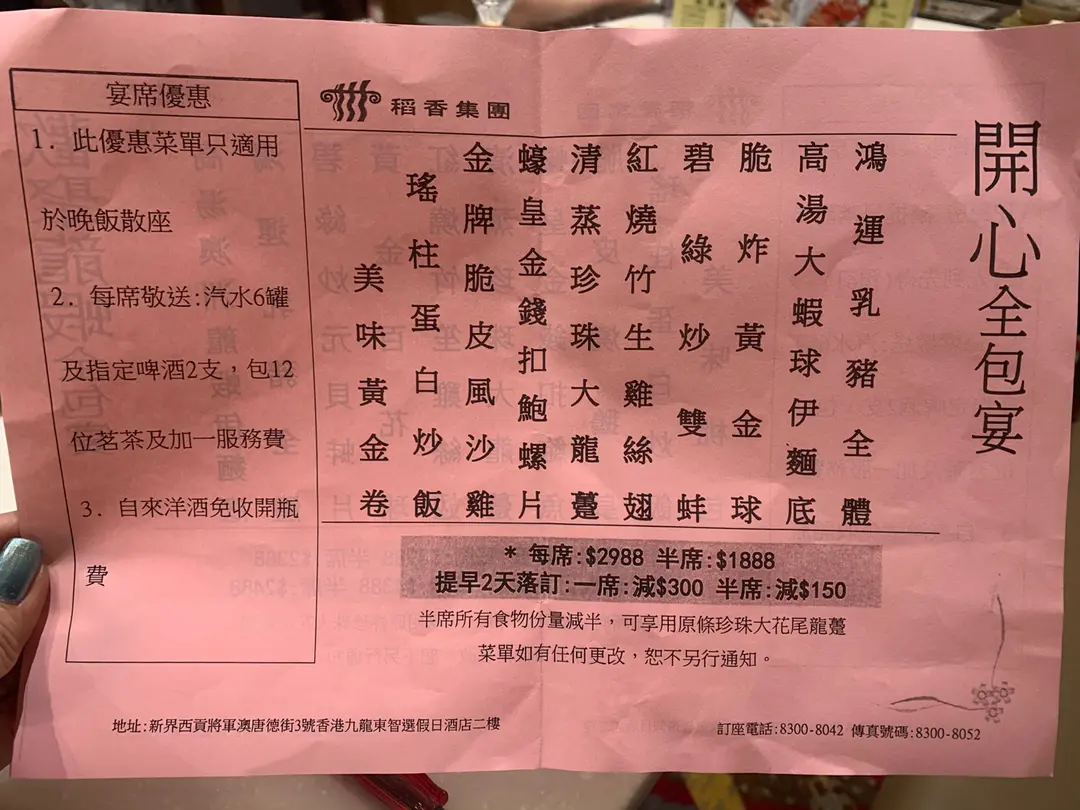 稻香集團
開心全包宴
鴻運乳豬全體
高湯大蝦球伊麵底
脆炸黃金球
碧綠炒雙蚌
紅燒竹生雞絲翅
清蒸珍珠大龍躉
蠔皇金錢扣鮑螺片
金牌脆皮風沙雞
瑤柱蛋白炒飯
美味黃金卷
宴席優惠
1. 此優惠菜單只適用
於晚飯散座
2. 每席敬送:汽水6罐
及指定啤酒2支，包12
位茗茶及加一服務費
3. 自來洋酒免收開瓶
費
* 每席:$2988 半席:$1888
提早2天落訂:一席:減$300 半席:減$150
半席所有食物份量減半，可享用原條珍珠大花尾龍躉
菜單如有任何更改，恕不另行通知。
地址:新界西貢將軍澳唐德街3號香港九龍東智選假日酒店二樓
訂座電話:8300-8042 傳真號碼:8300-8052